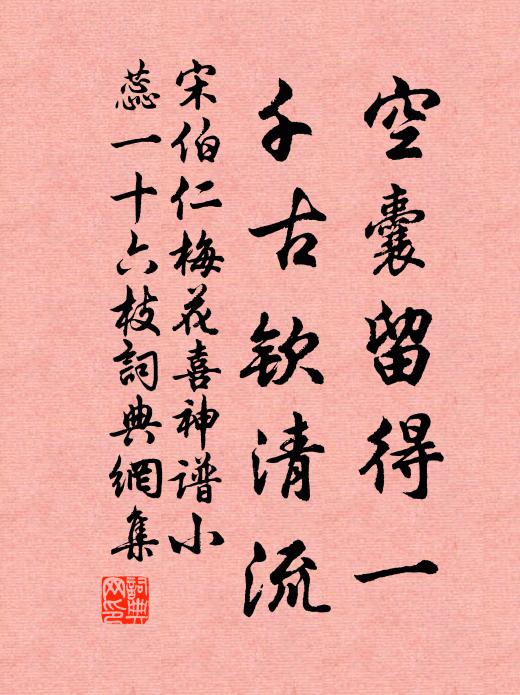 空囊留得一
千古欽清流
宋伯仁梅花喜神谱小
蕊一十六枝詞典網集
詞典網印